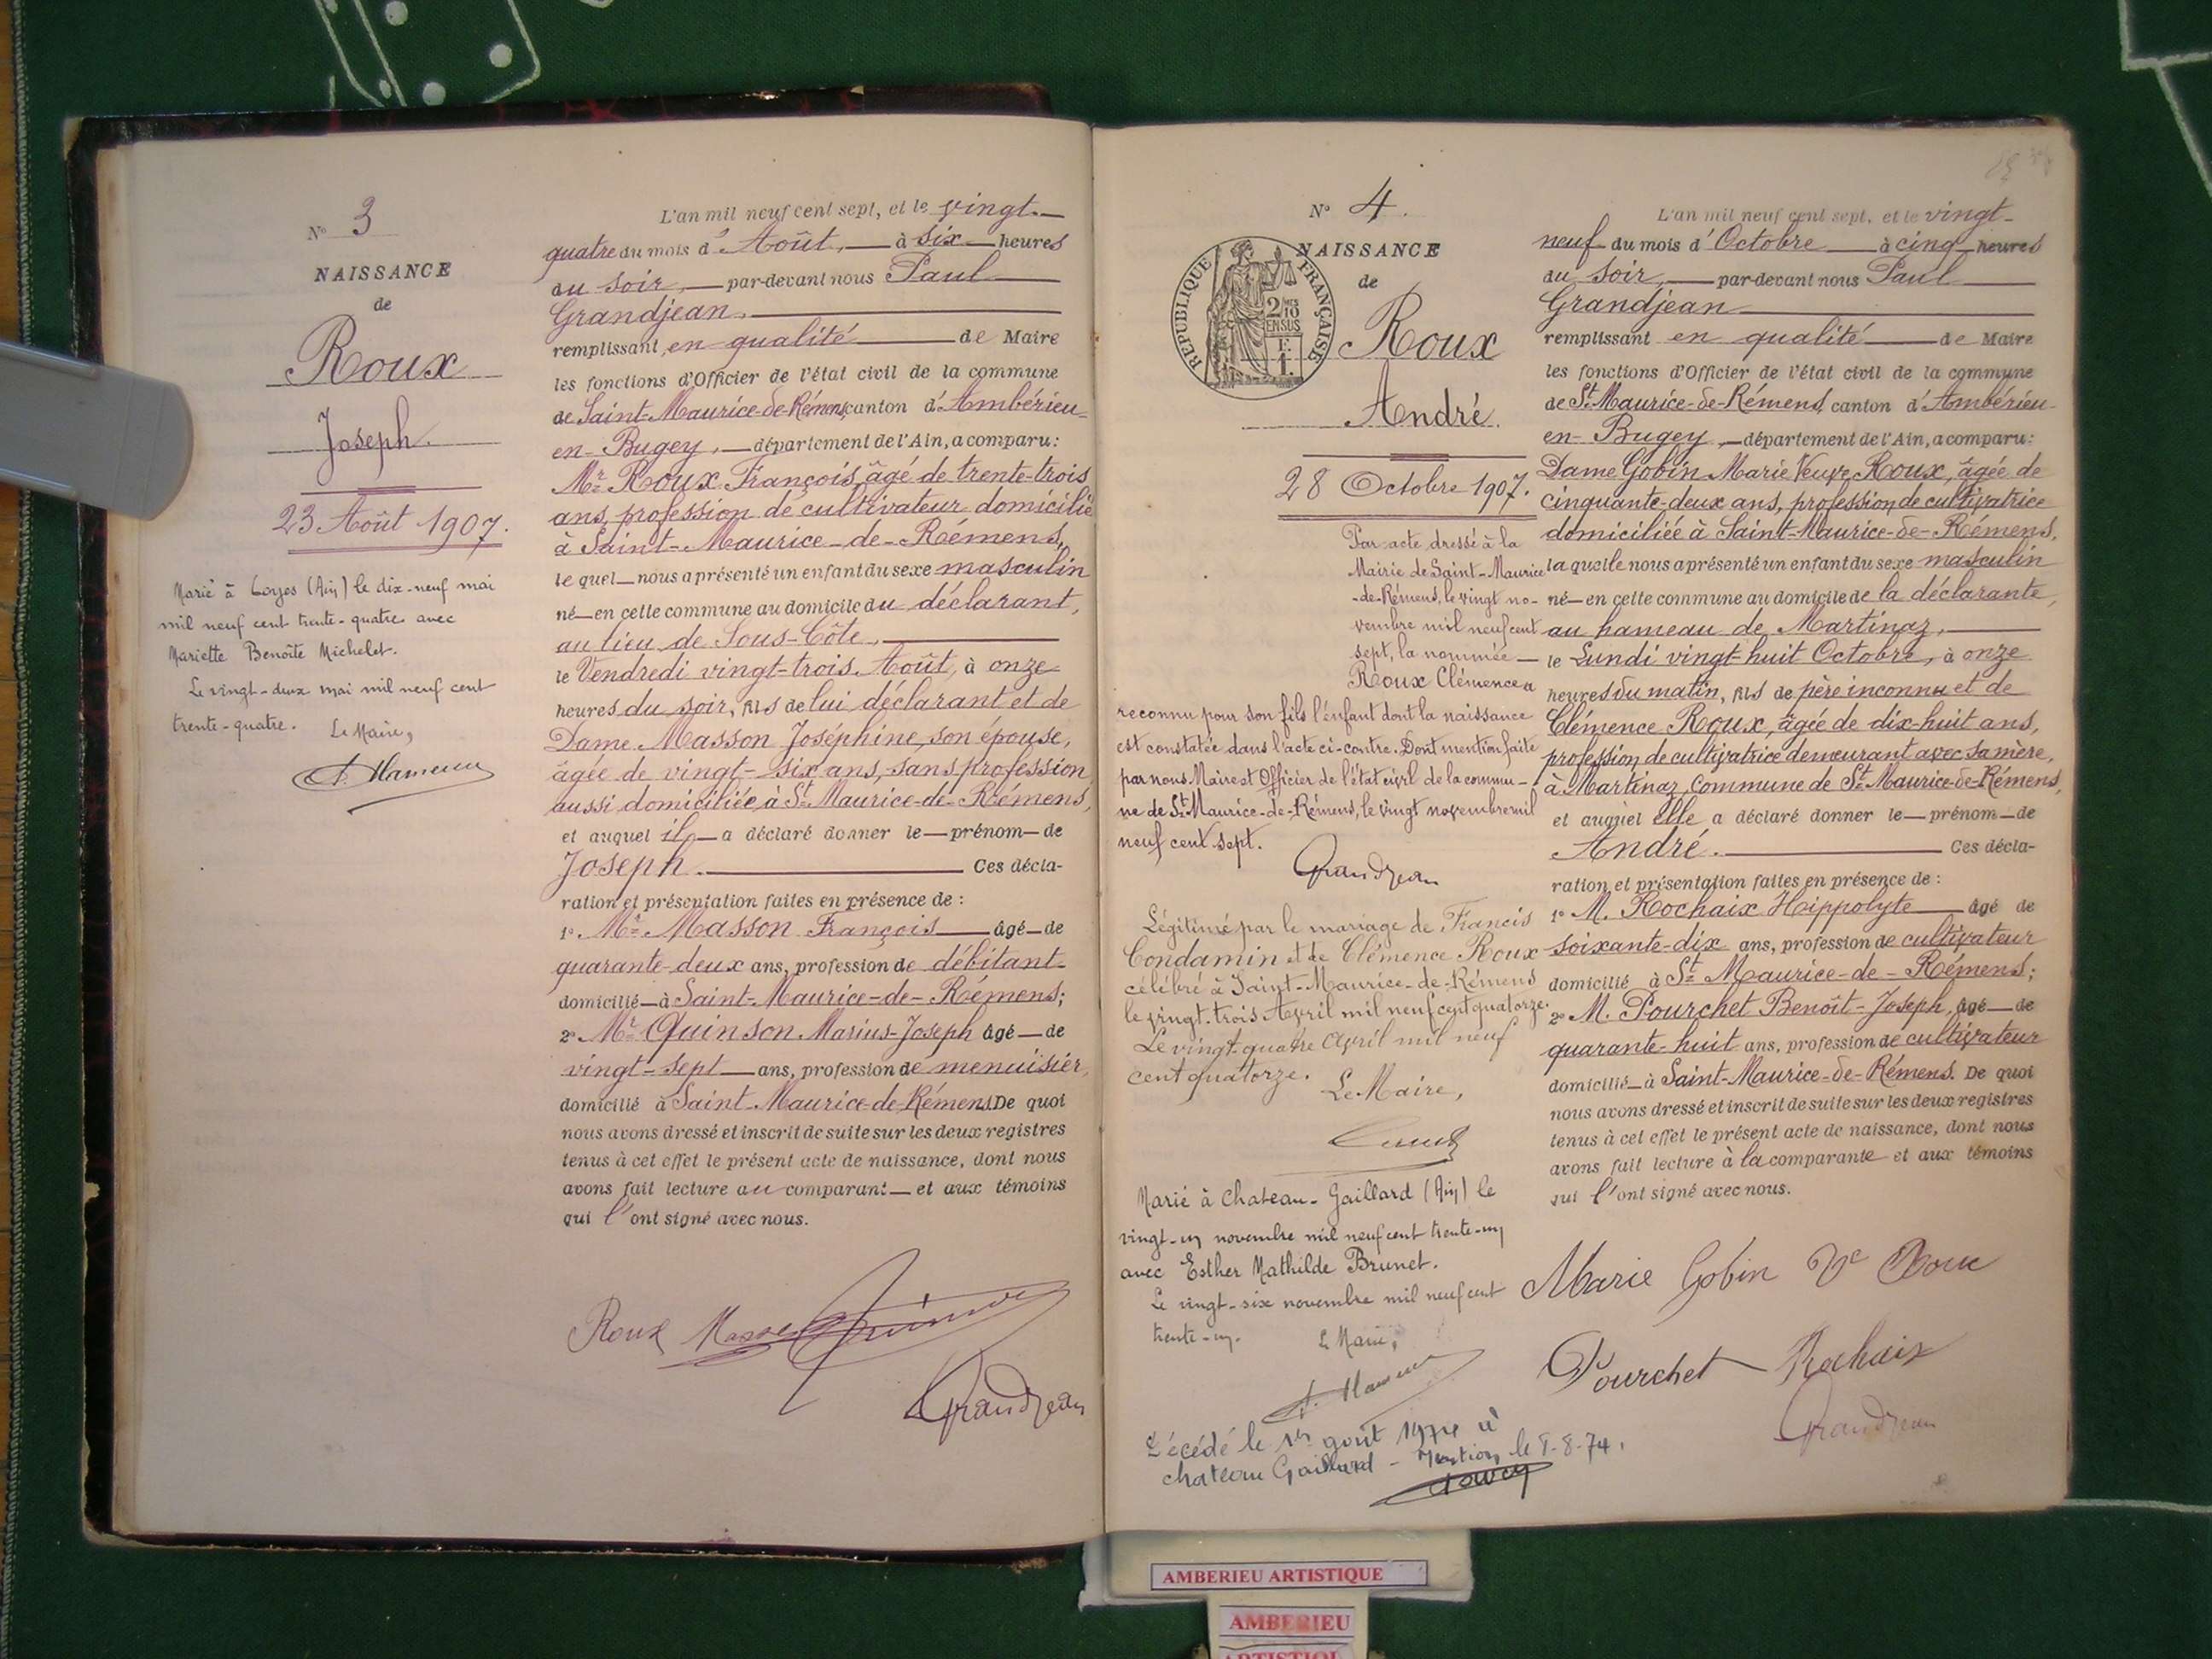 N° 3
NAISSANCE
de
Roux
Joseph.
23 Août 1907.
Marié à Loyes (Ain) le dix-neuf mai
mil neuf cent trente-quatre avec
Mariette Benoîte Michelet.
Le vingt-deux mai mil neuf cent
trente-quatre. Le Maire,
L'an mil neuf cent sept, et le vingt-
quatre du mois d'Août, à six heures
du soir, par-devant nous Paul
Grandjean,
remplissant en qualité de Maire
les fonctions d'Officier de l'état civil de la commune
de Saint-Maurice-de-Rémens canton d'Ambérieu-
en-Bugey, département de l'Ain, a comparu:
Mr Roux François, âgé de trente-trois
ans, profession de cultivateur domicilié
à Saint-Maurice-de-Rémens,
le quel nous a présenté un enfant du sexe masculin
né en cette commune au domicile du déclarant,
au lieu de Sous-Côte,
le Vendredi vingt-trois Août, à onze
heures du soir, fils de lui déclarant et de
Dame Masson Joséphine, son épouse,
âgée de vingt-six ans, sans profession
aussi domiciliée à St Maurice-de-Rémens,
et auquel il a déclaré donner le prénom de
Joseph. Ces décla-
ration et présentation faites en présence de :
1° Mr Masson François âgé de
quarante-deux ans, profession de débitant
domicilié à Saint-Maurice-de-Rémens;
2° Mr Quinson Marius-Joseph âgé de
vingt-sept ans, profession de menuisier,
domicilié à Saint-Maurice-de-Rémens. De quoi
nous avons dressé et inscrit de suite sur les deux registres
tenus à cet effet le présent acte de naissance, dont nous
avons fait lecture au comparant et aux témoins
qui l'ont signé avec nous.
Roux Masson Quinson
Grandjean
N° 4.
NAISSANCE
de
REPUBLIQUE FRANÇAISE
2/10
EN SUS
Roux
André.
28 Octobre 1907.
Par acte dressé à la
Mairie de Saint-Maurice
-de-Rémens, le vingt no-
vembre mil neuf cent
sept, la nommée
Roux Clémence a
reconnu pour son fils l'enfant dont la naissance
est constatée dans l'acte ci-contre. Dont mention faite
par nous Maire et Officier de l'état civil de la commu-
ne de St Maurice-de-Rémens, le vingt novembre mil
neuf cent sept.
Grandjean
Légitimé par le mariage de Francis
Condamin et de Clémence Roux
célébré à Saint-Maurice-de-Rémens
le vingt-trois Avril mil neuf cent quatorze.
Le vingt-quatre Avril mil neuf
cent quatorze.
Le Maire,
Marié à Chateau-Gaillard (Ain) le
vingt-un novembre mil neuf cent trente-un
avec Esther Mathilde Brunet.
Le vingt-six novembre mil neuf cent
trente-un. Le Maire,
Décédé le 1er août 1974 à
chateau Gaillard - Mention le 5-8-74.
L'an mil neuf cent sept, et le vingt-
neuf du mois d'Octobre à cinq heures
du soir, par-devant nous Paul
Grandjean
remplissant en qualité de Maire
les fonctions d'Officier de l'état civil de la commune
de St Maurice-de-Rémens, canton d'Ambérieu-
en-Bugey, département de l'Ain, a comparu:
Dame Gobin Marie Veuve Roux, âgée de
cinquante-deux ans, profession de cultivatrice
domiciliée à Saint-Maurice-de-Rémens,
la quelle nous a présenté un enfant du sexe masculin
né en cette commune au domicile de la déclarante,
au hameau de Martinaz,
le Lundi vingt-huit Octobre, à onze
heures du matin, fils de père inconnu et de
Clémence Roux, âgée de dix-huit ans,
profession de cultivatrice demeurant avec sa mère,
à Martinaz, Commune de St Maurice-de-Rémens,
et auquel elle a déclaré donner le prénom de
André. Ces décla-
ration et présentation faites en présence de :
1° M. Rochaix Hippolyte âgé de
soixante-dix ans, profession de cultivateur
domicilié à St Maurice-de-Rémens;
2° M. Pourchet Benoît-Joseph, âgé de
quarante-huit ans, profession de cultivateur
domicilié à Saint-Maurice-de-Rémens. De quoi
nous avons dressé et inscrit de suite sur les deux registres
tenus à cet effet le présent acte de naissance, dont nous
avons fait lecture à la comparante et aux témoins
qui l'ont signé avec nous.
Marie Gobin Ve Roux
Pourchet Rochaix
Grandjean
AMBERIEU ARTISTIQUE
AMBERIEU
ARTISTIQUE